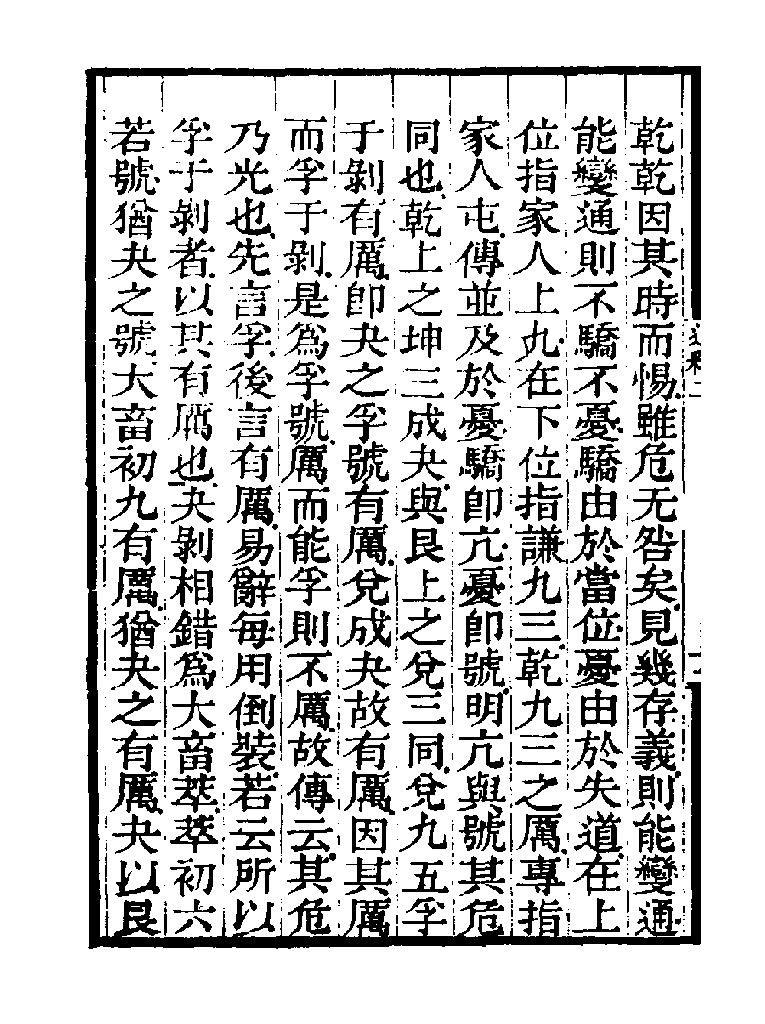 乾乾因其時而惕雖危无咎矣見幾存義則能變通
能變通則不驕不憂驕由於當位憂由於失道在上
位指家人上九在下位指謙九三乾九三之厲專指
家人屯傳並及於憂驕卽亢憂卽號明亢與號其危
同也乾上之坤三成夬與艮上之兌三同兌九五孚
于剝有厲卽夬之孚號有厲兌成夬故有厲因其厲
而孚于剝是爲孚號厲而能孚則不厲故傳云其危
乃光也先言孚後言有厲易辭每用倒裝若云所以
孚于剝者以其有厲也夬剝相錯爲大畜萃萃初六
若號猶夬之號大畜初九有厲猶夬之有厲夬以艮